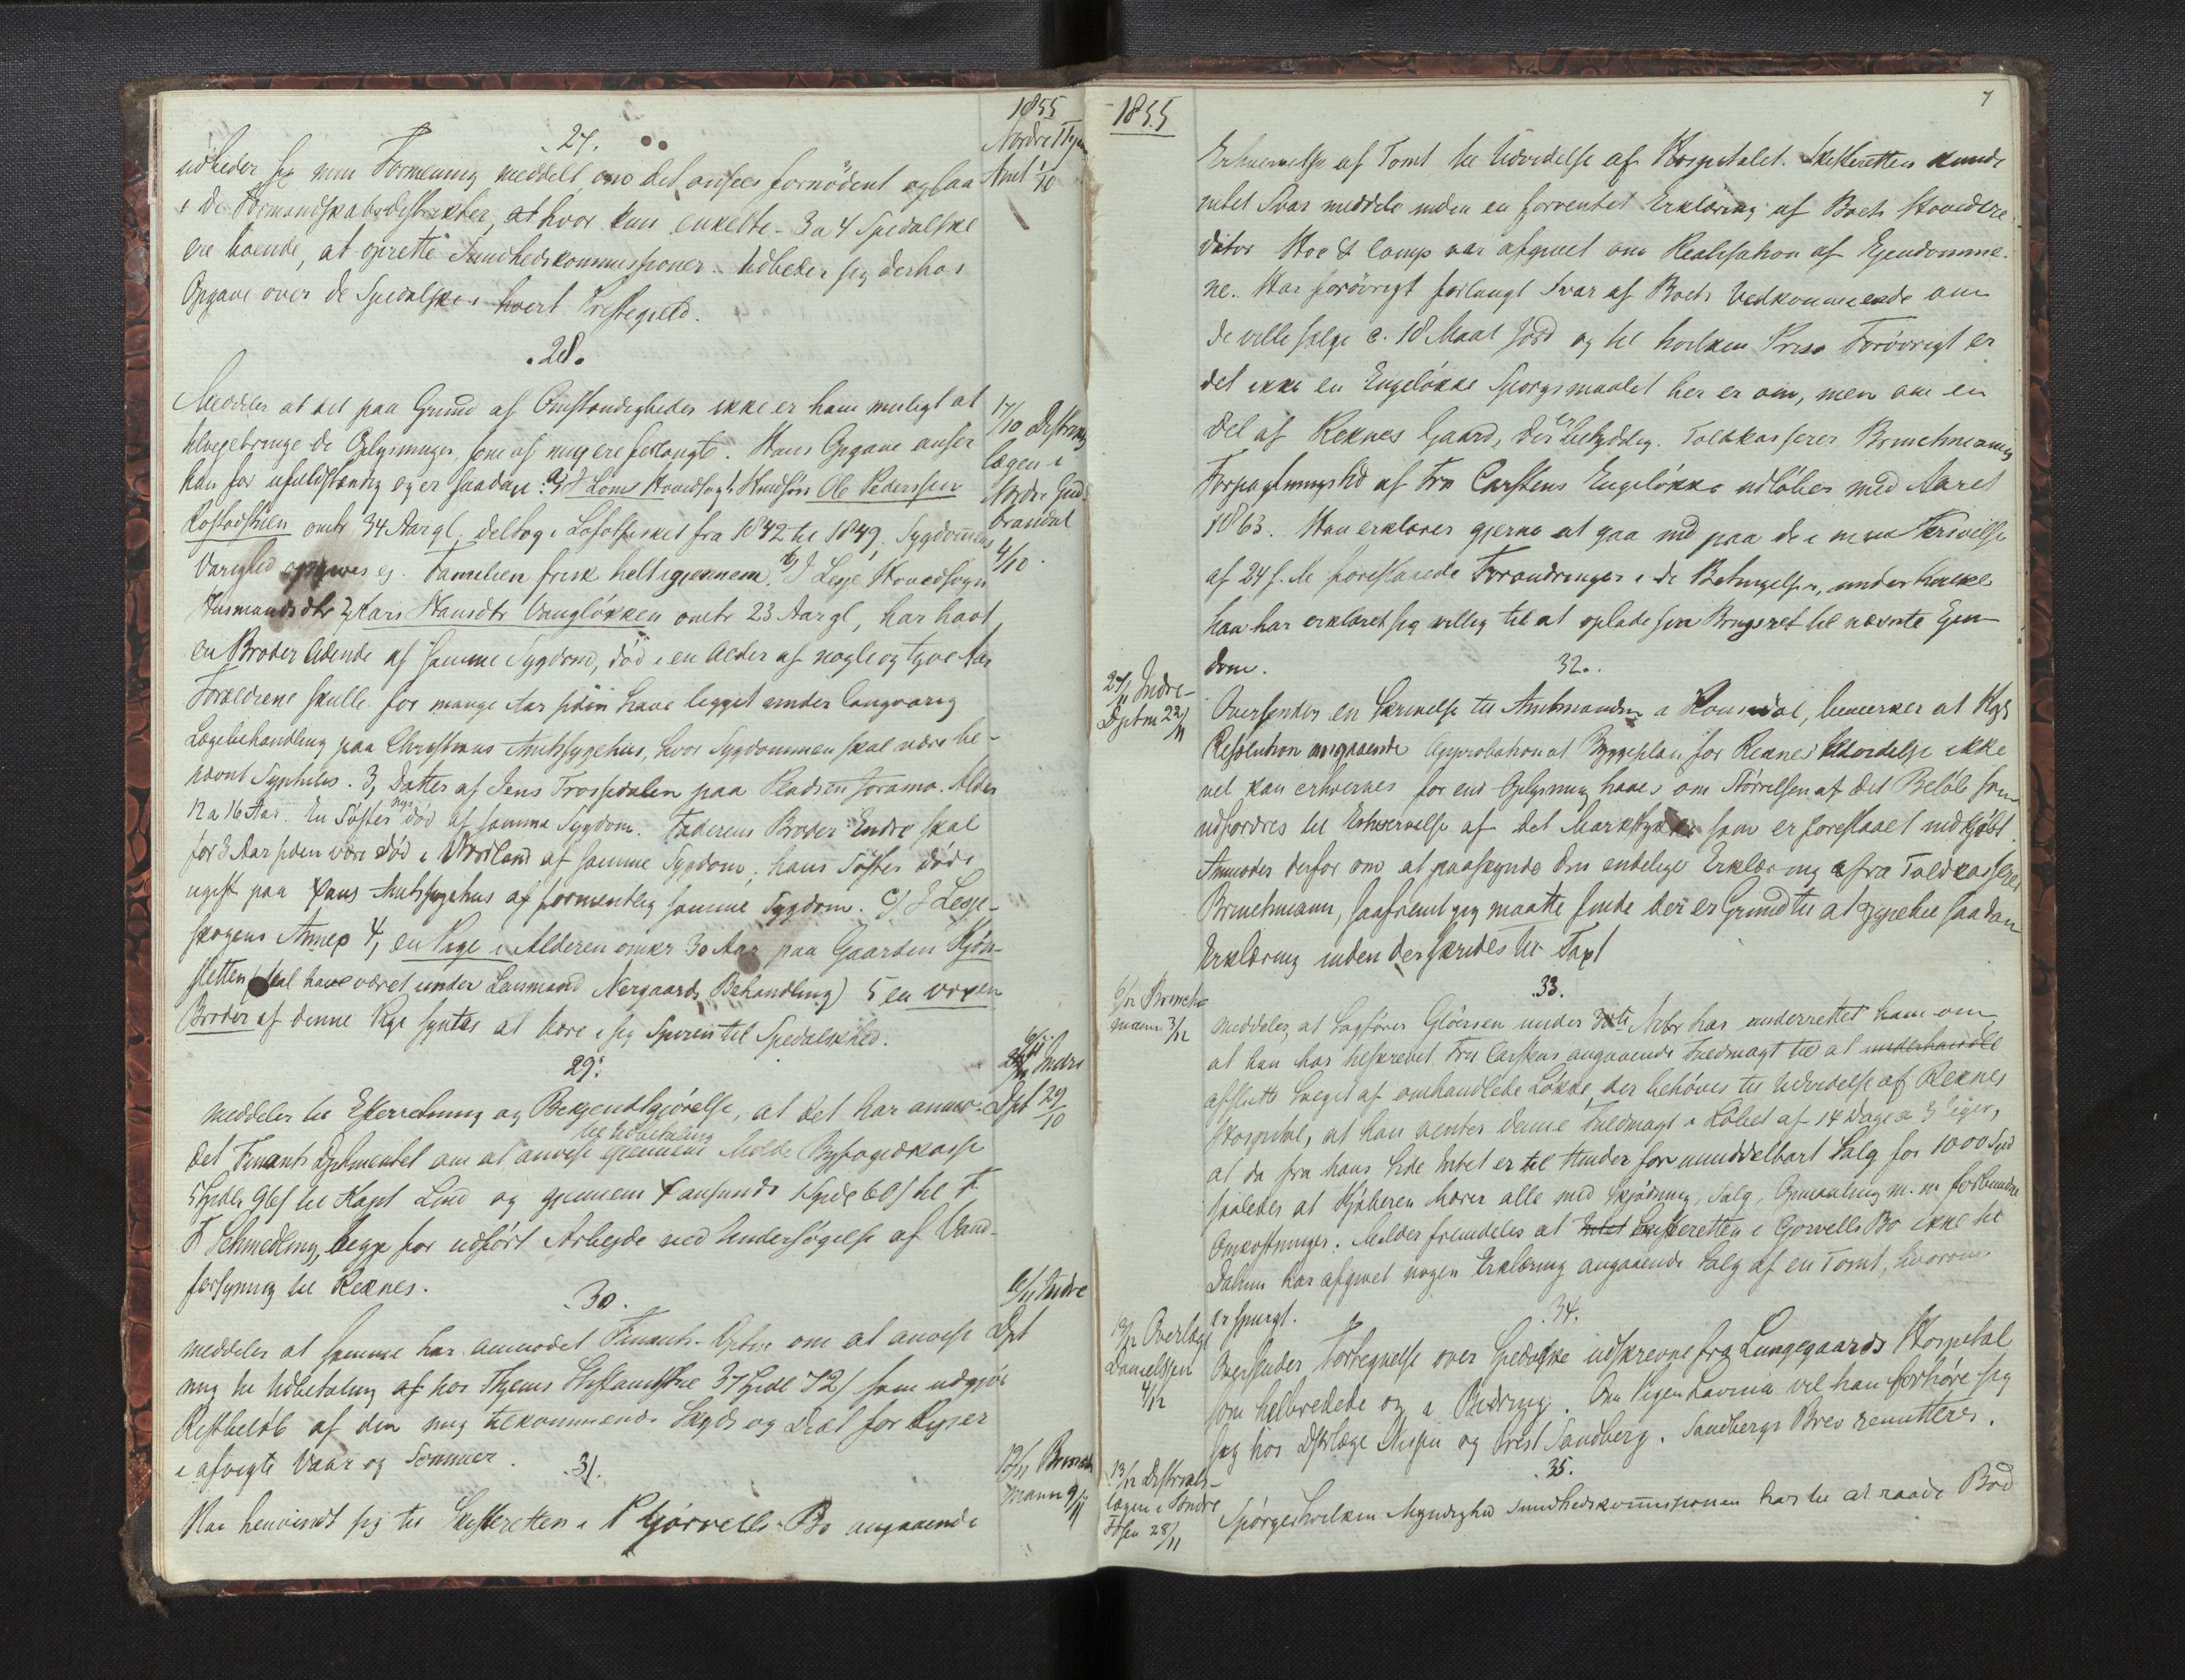 1855
27.
Nordre Thjems
Amt 1/10
udbeder sig min Formening meddelt, om det ansees fornödent ogsaa
i de Formandskabsdistrikter, hvor kun enkelte - 3 a 4 Spedalske
ere boende, at oprette Sundhedskommissioner. Udbeder sig derhos
Opgave over de Spedalske i hvert Prestegjeld.
28.
17/10 Distrikts
lægen i
Nordre Gud-
brandal
4/10.
Meddeler at det paa Grund af Omstændigheder ikke er ham muligt at
tilvejebringe de Oplysninger, som af mig ere forlangte. Hans Opgave anser
han for ufuldstændig og er saadan: a) I Loms Hovedsogn Husfar Ole Pederssen
omtr 34 Aar gl. deltog i Lofotfisket fra 1842 til 1849, Sygdommens
Varighed opgives ej. Familien frisk helt igjennem. b) I Lesje Hovedsogn
Husmandsdtr 2, Kari Hansdtr Vangløkken omtr 23 Aar gl, har havt
en Broder lidende af samme Sygdom, död i en Alder af nogle og tyve Aar
Forældrene skulle for mange Aar siden have ligget under langvarig
Lægebehandling paa Christians Amtssygehus, hvor Sygdommen skal være be-
nævnt Syphilis. 3, Datter af Jens Trossdalen paa Pladsen Joramo. Alder
12 a 16 Aar. En Söster nys död af samme Sygdom. Faderens Broder Endre skal
for 3 Aar siden være död i af samme Sygdom; hans Söster döde
ugift paa Xans Amtssygehus af formentlig samme Sygdom. c) I Lesje-
skogens Annex 4, en Pige i Alderen omkr 30 Aar paa Gaarden
(skal have været under Lensmand Nergaards Behandling) 5 en voxen
Broder af denne Pige syntes at bære i sig Spiren til Spedalskhed.
29.
6/11 Indre
Dpt 29/10
meddeler til Efterretning og Bekjendtgjörelse, at det har anmo-
det Finants Dptmentet om at anvise til Udbetaling gjennem Molde Byfogedkasse
5 Spdlr 96 s til Kapt Lind og gjennem Xansunds 1 Spdl 60 s til F.
F Schmedling, begge for udfört Arbejde ved Undersögelse af Vand-
forsyning til Reknes.
30.
6/11 Indre
Dpt
meddeler at samme har anmodet Finants-Dptm om at anvise
mig til Udbetaling hos Thjems Stiftamtstue 37 Spdl 72 s som udgjör
Restbelöb af den mig tilkommende Skyds og Diæt for Rejser
i afvigte Vaar og Sommer.
31.
13/11 Brinch
mann 9/11
Har henvendt sig til Skifteretten i P Gjörvells Bo angaaende
1855
7
Erhvervelse af Tomt til Udvidelse af Hospitalet. Skifteretten kunde
intet Svar meddele inden en forventet Erklæring af Boets Hovedcre-
ditor Hoe & Comp var afgivet om Realisation af Ejendomme-
ne. Har forövrigt forlangt Svar af Boets Vedkommende om
de ville sælge c. 10 Maal Jord og til hvilken Pris. Forövrigt er
det ikke en Engelökke Spörgsmaalet her er om, men om en
Del af Reknes Gaard, der er betydelig. Toldkasserer Brinchmanns
Forpagtningstid af Fru Carstens Engelökke udlöber med Aaret
1863. Han erklærer gjerne at gaa ind paa de i min Skrivelse
af 24 f. M. foreslaaede Forandringer i de Betingelser, under hvilke
han har erklæret sig villig til at oplade sin Brugsret til nævnte Ejen-
dom.
32.
27/11 Indre-
Dptm 22/11
Oversender en Skrivelse til Amtmanden i Romsdal, bemærker at Kgl
Resolution angaaende Approbation at Byggeplan for Reknes Udvidelse ikke
vel kan erhverves for end Oplysning haves om Störrelsen af det Belöb som
udfordres til Erhvervelse af det Markstykke som er foreslaaet indkjöbt.
Anmodes derfor om at paaskynde den endelige Erklæring fra Toldkasserer
Brinchmann, saafremt jeg maatte finde der er Grund til at saadan
Erklæring inden der skrides til Taxt
33.
6/12 Brinch-
mann 3/12
meddeler, at Sagförer Glöersen under 30te Nvbr har underrettet ham om
at han har tilskrevet Fru Carstens angaaende Fuldmagt til at underhandle
afslutte Salget af omhandlede Lökke, der behöves til Udvidelse af Reknes
Hospital, at han venter denne Fuldmagt i Löbet af 14 Dage a 3 Uger,
at da fra hans Side Intet er til Hinder for umiddelbart Salg for 1000 Spd
saaledes at Kjöberen bærer alle med Skjödning, Salg, Opmaaling m. m forbundne
Omkostninger. Melder fremdeles at Intet Skifteretten i Gjörvells Bo ikke til
Datum har afgivet nogen Erklæring angaaende Salg af en Tomt, hvorom
er spurgt.
34.
10/12 Overlæge
Danielssen
4/12
Oversender Fortegnelse over Spedalske udskrevne fra Lungegaards Hospital
som helbredede og i Bedring. Om Pigen Lavinia vil han forhöre sig
sig hos Dstrlæge Nissen og Prest Sandberg. Sandbergs Brev remitteres.
35.
13/12 Distrikts-
lægen i Söndre
Fosen 28/11
Spörger hvilken Myndighed Sundhedskommissionen har til at raade Bod